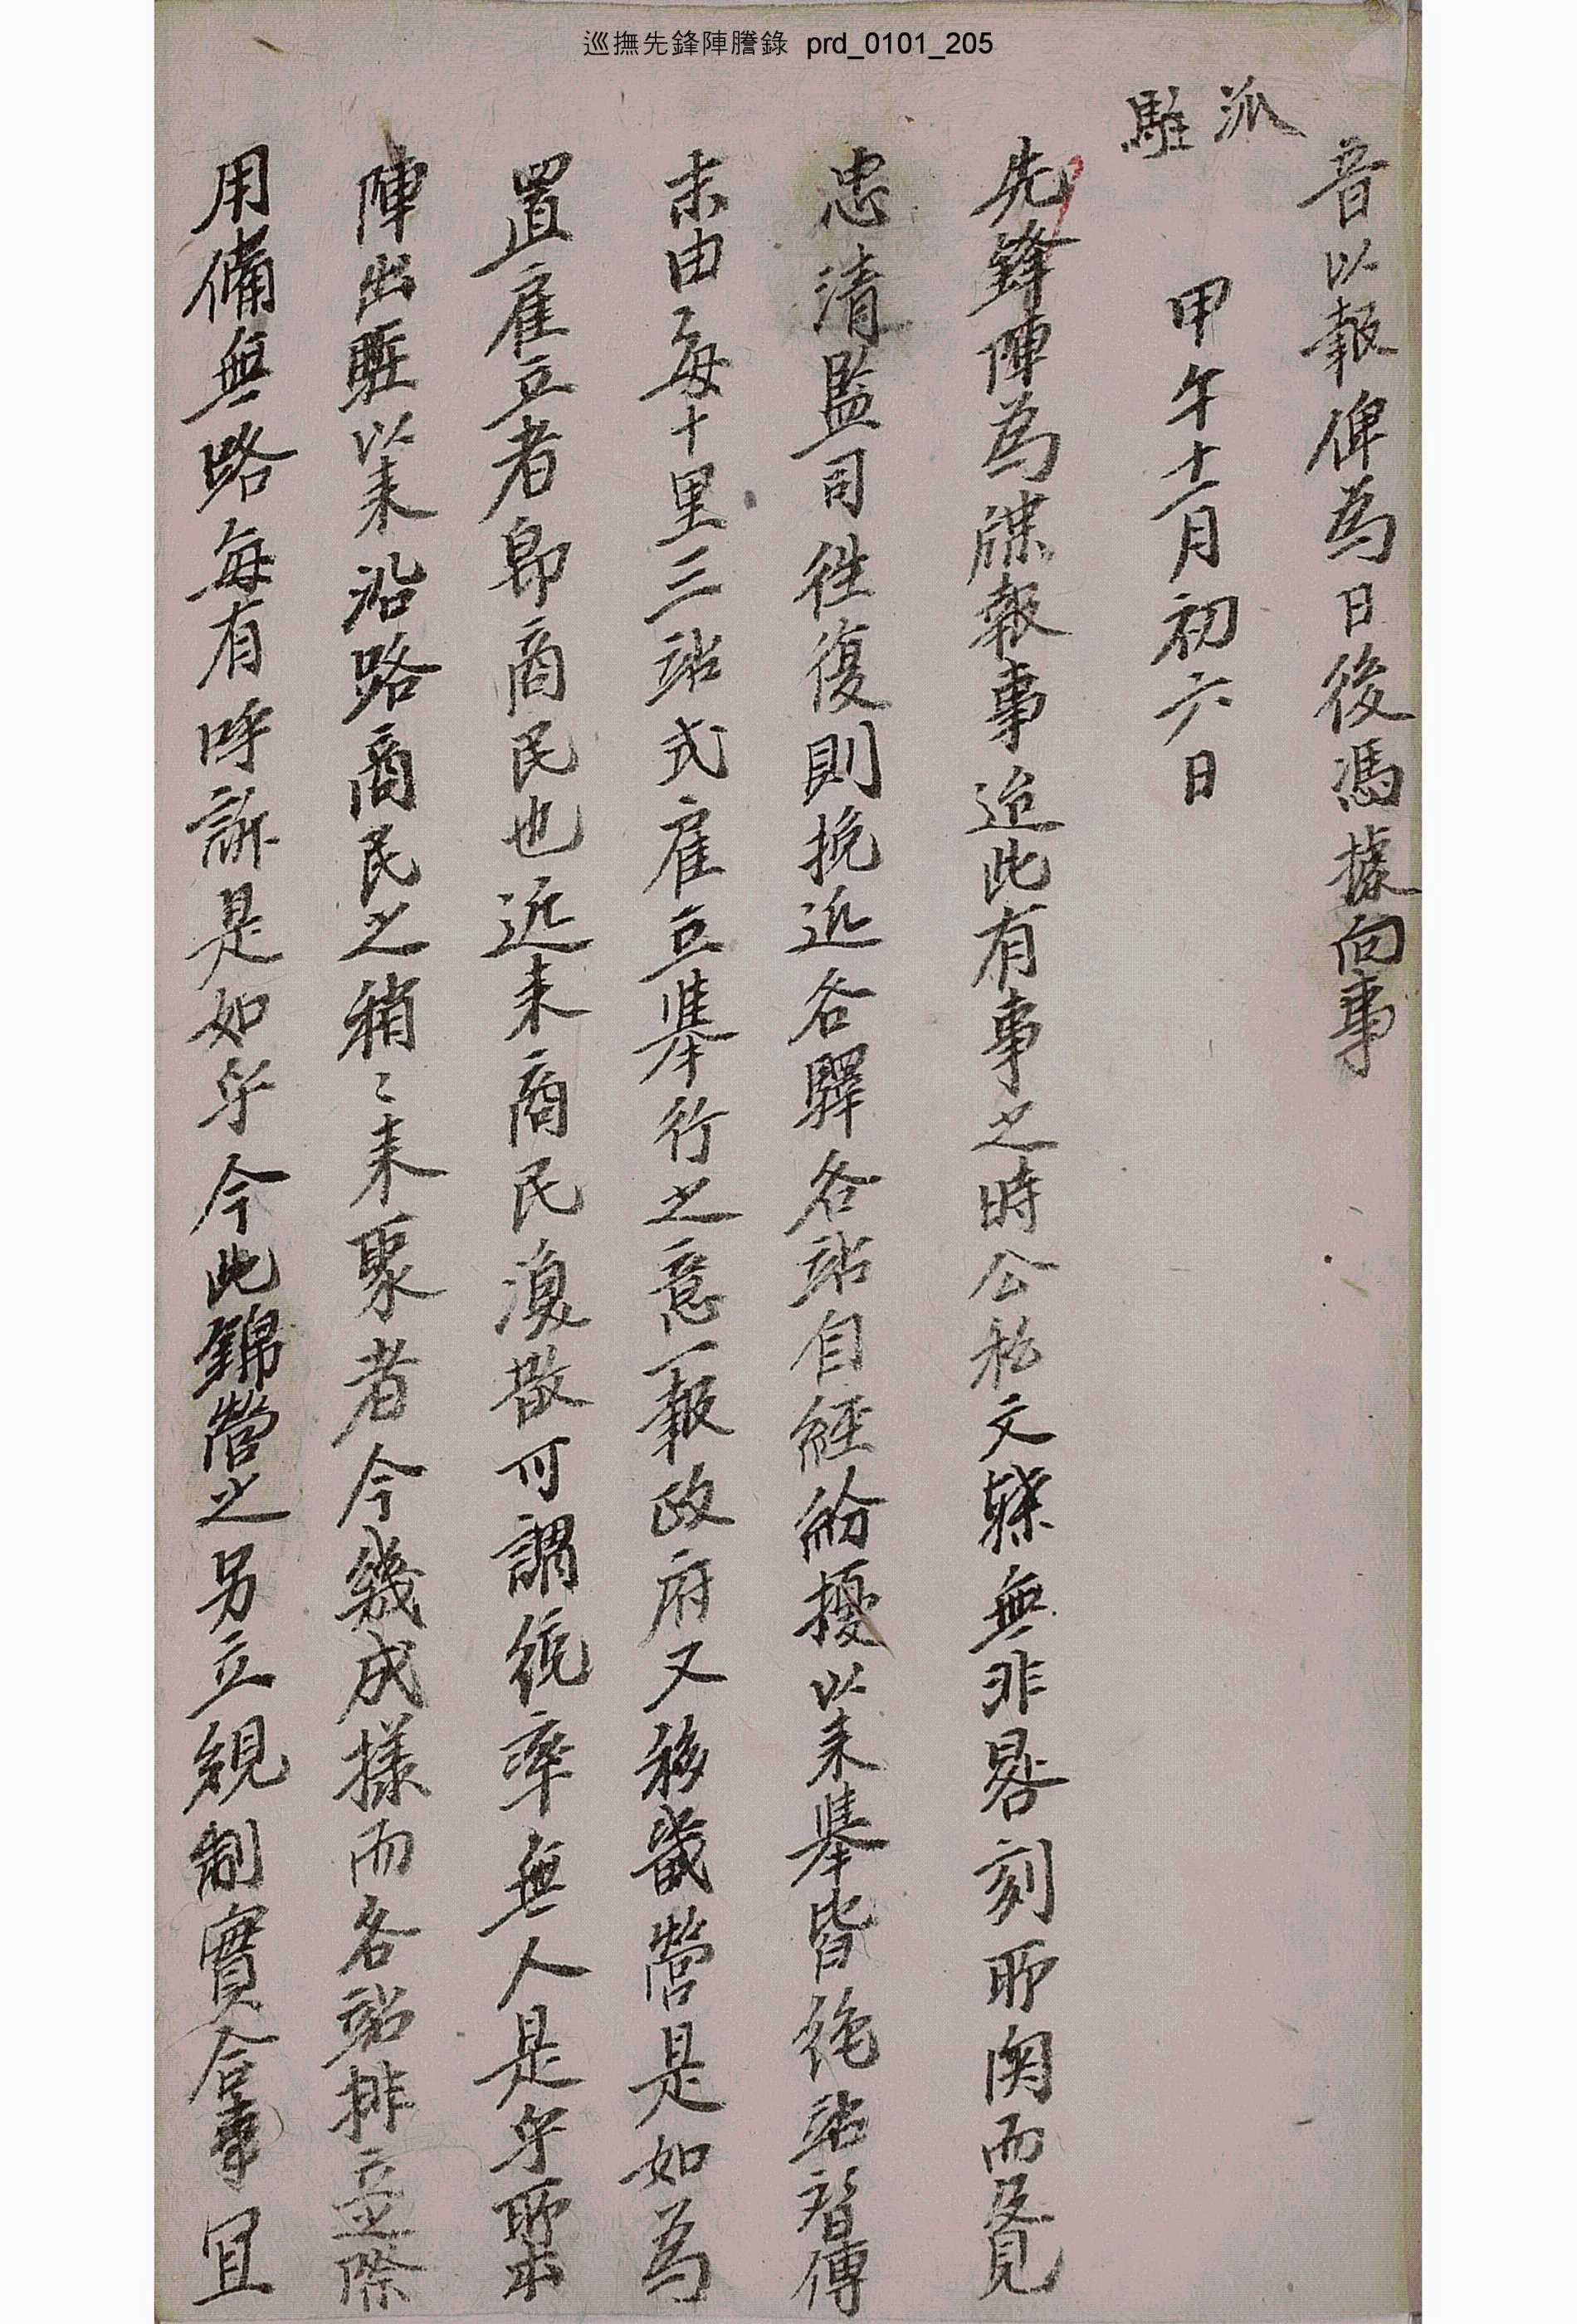 巡撫先鋒陣謄錄 prd_0101_205
音以報俾爲日後憑據向事
派
駐
甲午十一月初六日
先鋒陣爲牒報事迨此有事之時公私文蹟無非晷刻所関而及見
忠清監司徃復則挽近各驛各站自經紛擾以来擧皆絶站替傳
末由每十里三站式雇立擧行之意一報政府又移畿營是如爲
置雇立者卽商民也近来商民渙散可謂統率無人是乎所本
陣出駐以来沿路商民之稍〻来聚者今幾成㨾而各站排立之際
用備無路每有呼訴是如乎今此錦營之另立規制實合事宜